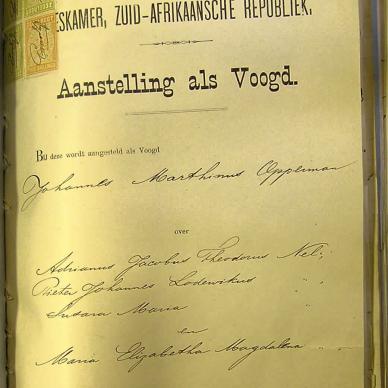 ESKAMER, ZUID-AFRIKAANSCHE REPUBLIEK.
Aanstelling als Voogd.
Bij deze wordt aangesteld als Voogd
Johannes Marthinus Opperman
over
Adrianus Jacobus Theodorus Nel,
Pieter Johannes Lodewikus " "
Susara Maria " "
en
Maria Elizabetha Magdalena " "